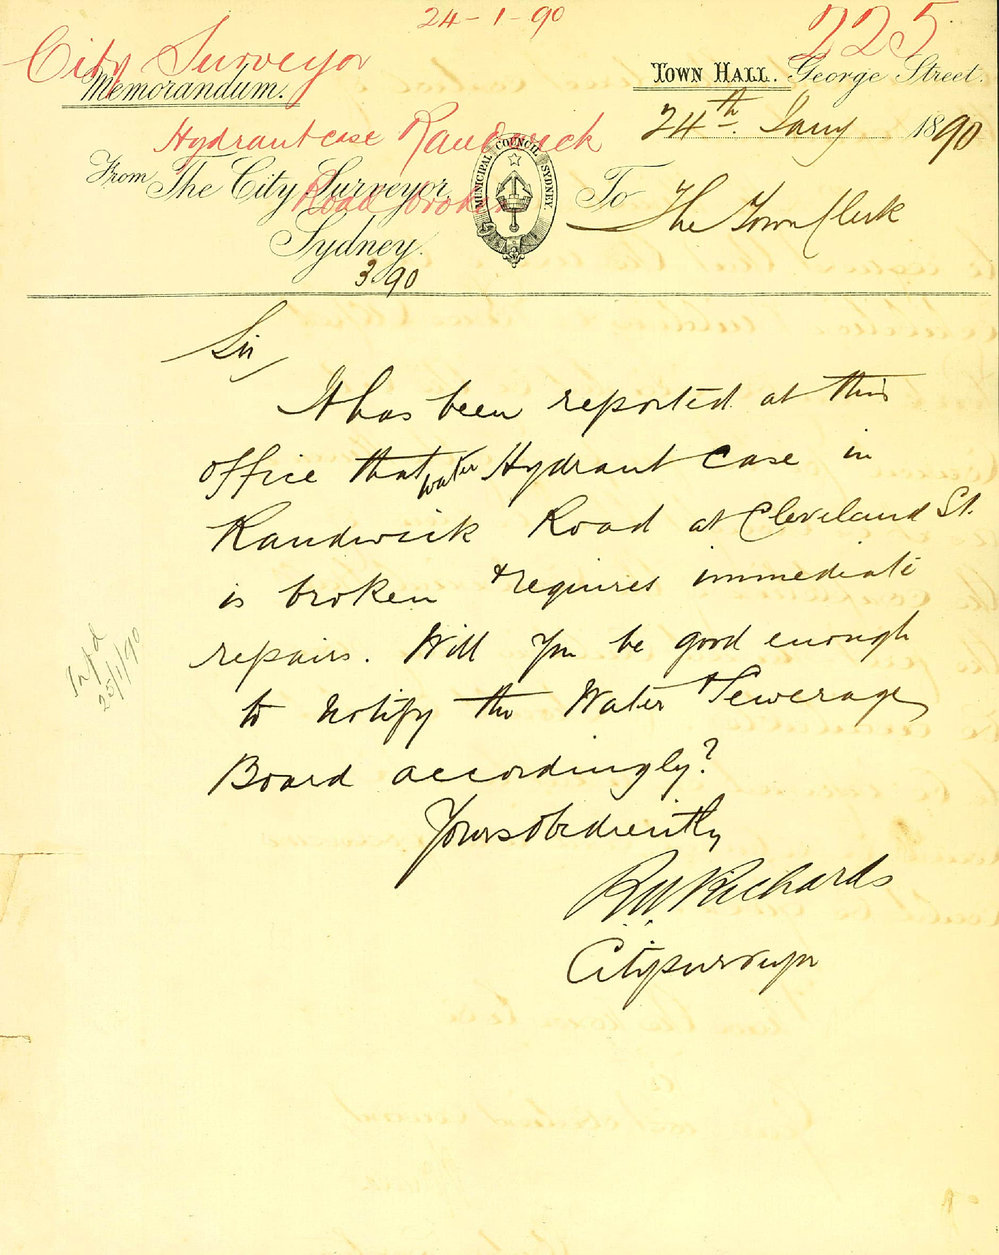 24-1-90
225
City Surveyor
Memorandum.
Town Hall. George Street.
Hydrant case Randwick
Road broken
24th. Jany 1890
From The City Surveyor
Sydney.
MUNICIPAL COUNCIL SYDNEY
To The Town Clerk
3.90
Sir
It has been reported at this
office that water Hydrant case in
Randwick Road at Cleveland St.
is broken & requires immediate
repairs. Will you be good enough
to notify the Water & Sewerage
Board accordingly?
Yours obediently
RW Richards
City Surveyor
Inf d
25/1/90